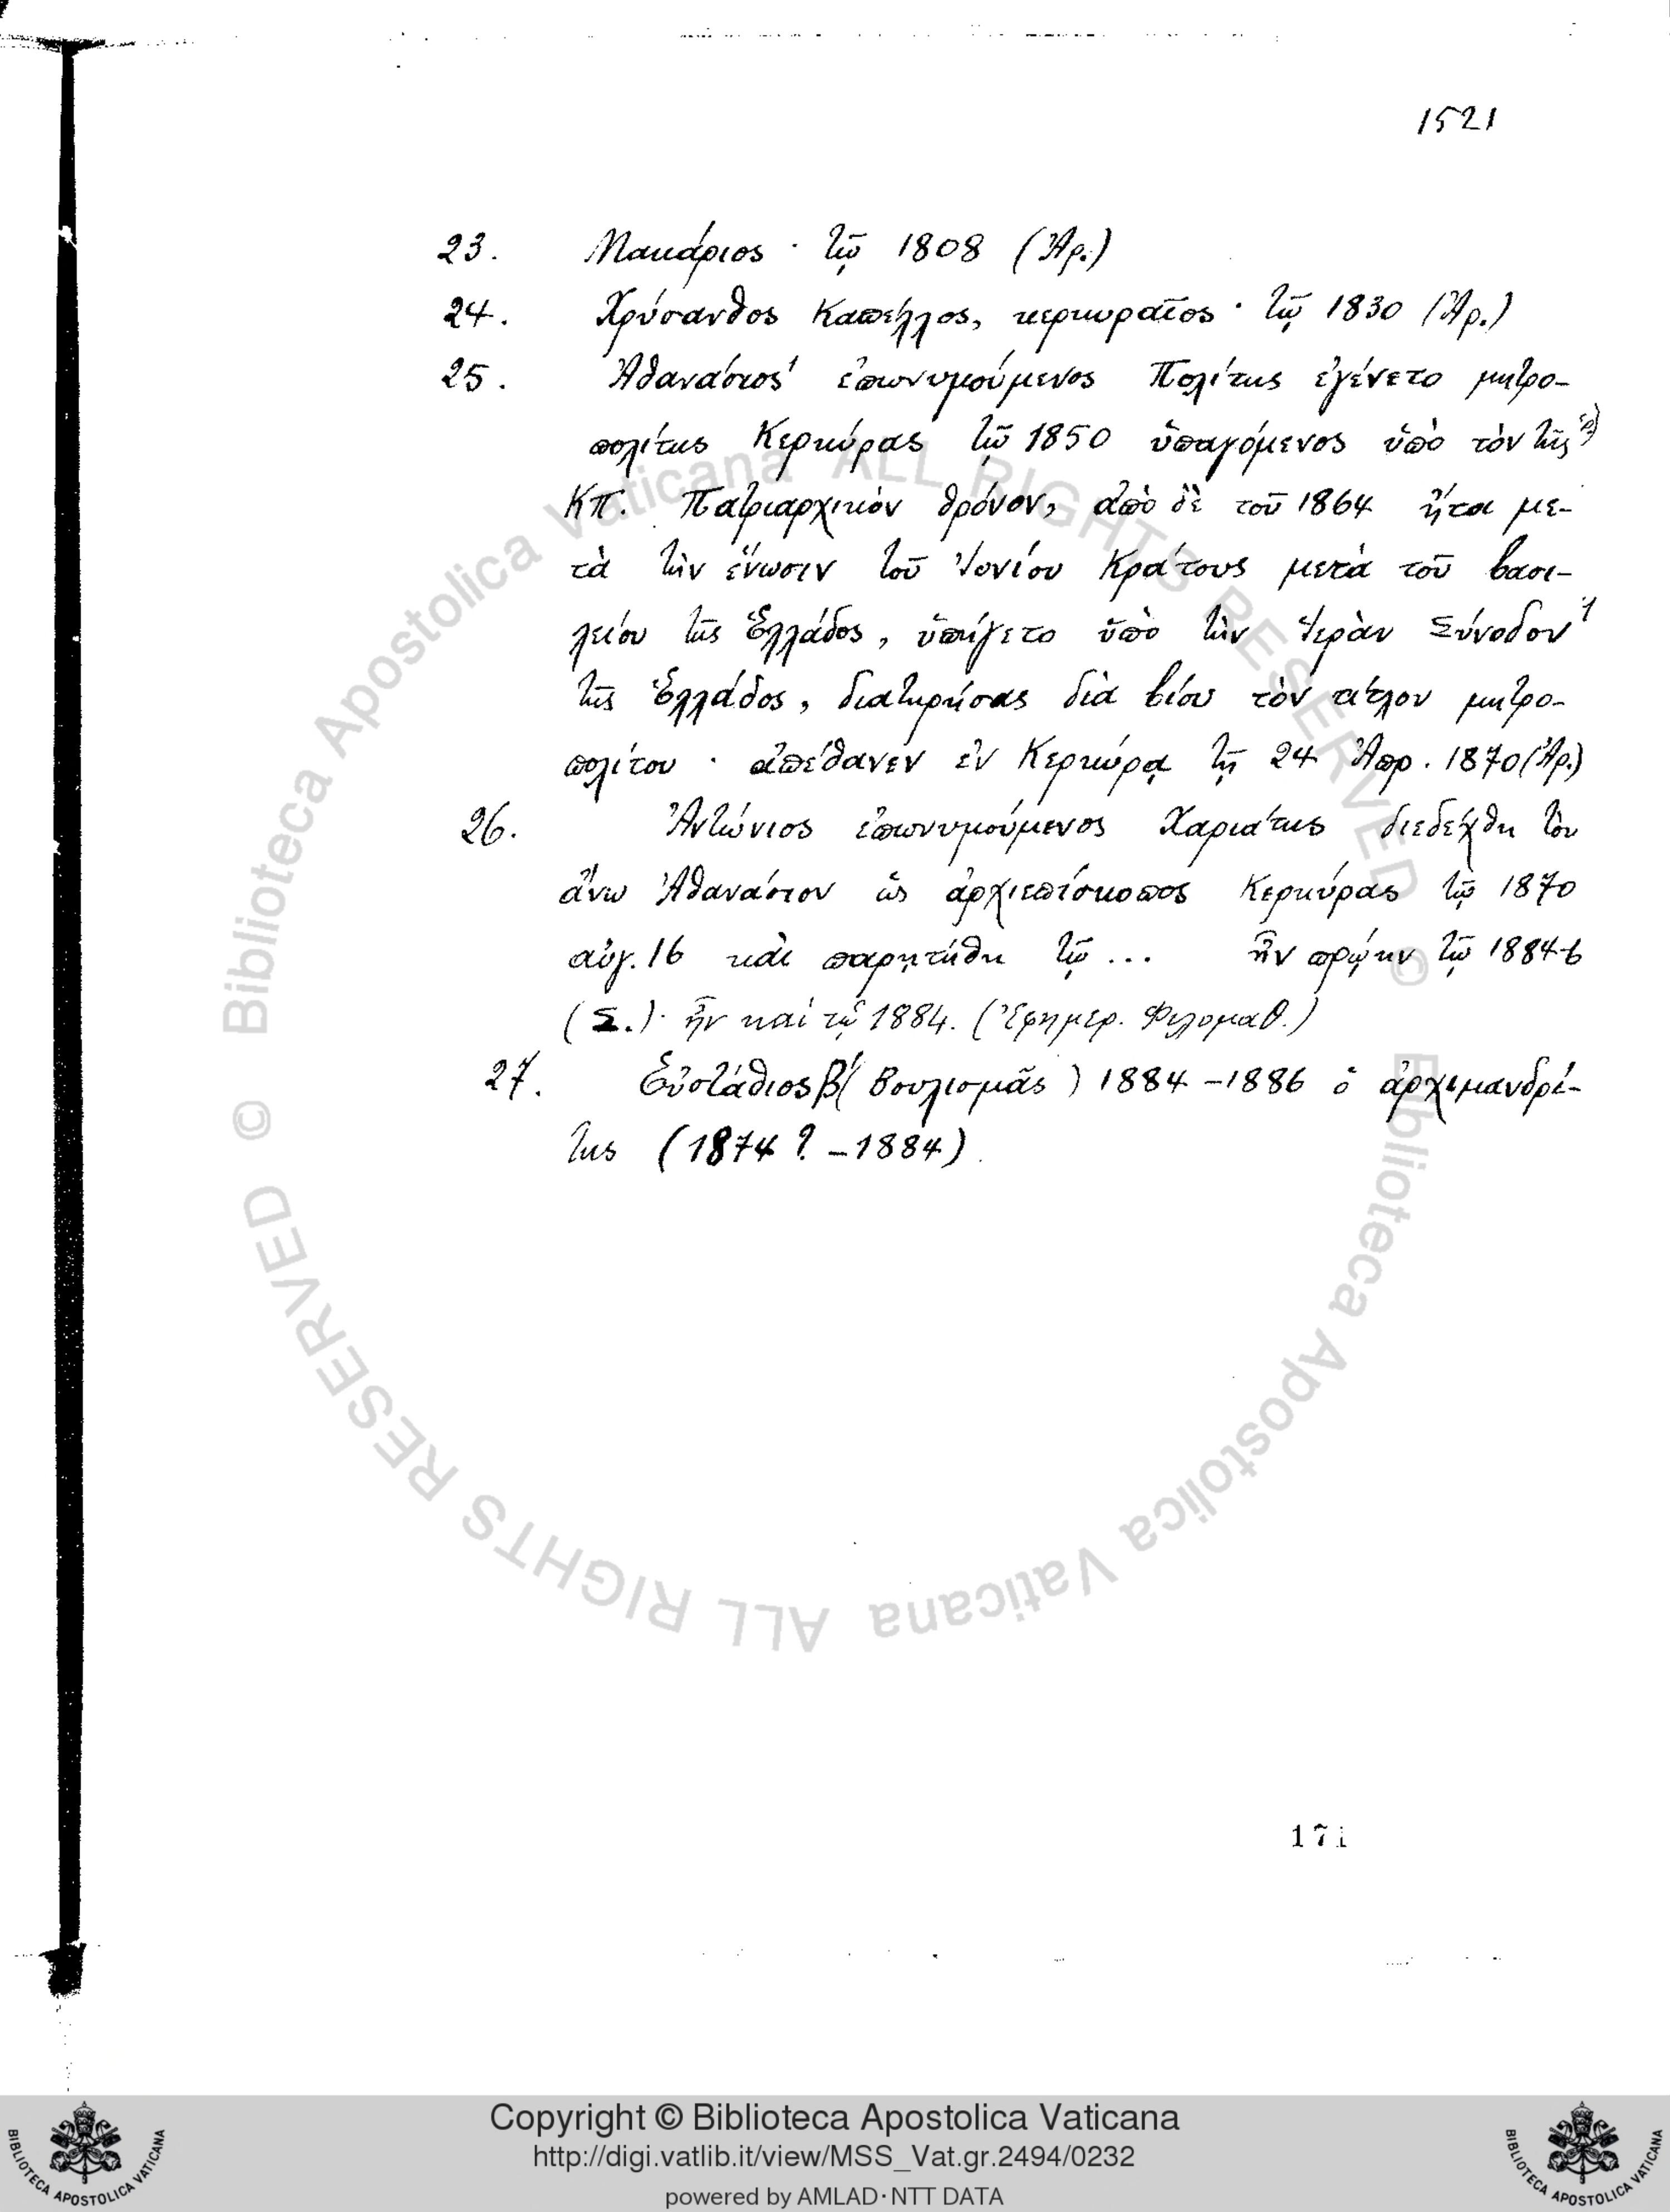 1521
23. Μακάριος · τῷ 1808 (Ἀρ.)
24. Χρύσανθος Καπέλλος, κερκυραῖος · τῷ 1830 (Ἀρ.)
25. Ἀθανάσιος ἐπωνυμούμενος Πολίτης ἐγένετο μητρο-
πολίτης Κερκύρας τῷ 1850 ὑπαγόμενος ὑπὸ τὸν τῆς
ΚΠ. Πατριαρχικὸν θρόνον, ἀπὸ δὲ τοῦ 1864 ἤτοι με-
τὰ τὴν ἕνωσιν τοῦ Ἰονίου Κράτους μετὰ τοῦ βασι-
λείου τῆς Ἑλλάδος, ὑπήγετο ὑπὸ τὴν Ἱερὰν Σύνοδον
τῆς Ἑλλάδος, διατηρήσας διὰ βίου τὸν τίτλον μητρο-
πολίτου · ἀπέθανεν ἐν Κερκύρᾳ τῇ 24 Ἀπρ. 1870 (Ἀρ.)
26. Ἀντώνιος ἐπωνυμούμενος Χαριάτης διεδέχθη τὸν
ἄνω Ἀθανάσιον ὡς ἀρχιεπίσκοπος Κερκύρας τῷ 1870
αὐγ. 16 καὶ παρῃτήθη τῷ ... ἦν πρῴην τῷ 1884
(Σ.) · ἦν καὶ τῷ 1884. (Ἐφημερ. Φιλομαθ.)
27. Εὐστάθιος β' (Βουλισμᾶς) 1884-1886 ὁ ἀρχιμανδρί-
της (1874 ? -1884)
171
Biblioteca Apostolica Vaticana ALL RIGHTS RESERVED ©
Biblioteca Apostolica Vaticana ALL RIGHTS RESERVED ©
Copyright © Biblioteca Apostolica Vaticana
http://digi.vatlib.it/view/MSS_Vat.gr.2494/0232
powered by AMLAD·NTT DATA
BIBLIOTECA APOSTOLICA VATICANA
BIBLIOTECA APOSTOLICA VATICANA